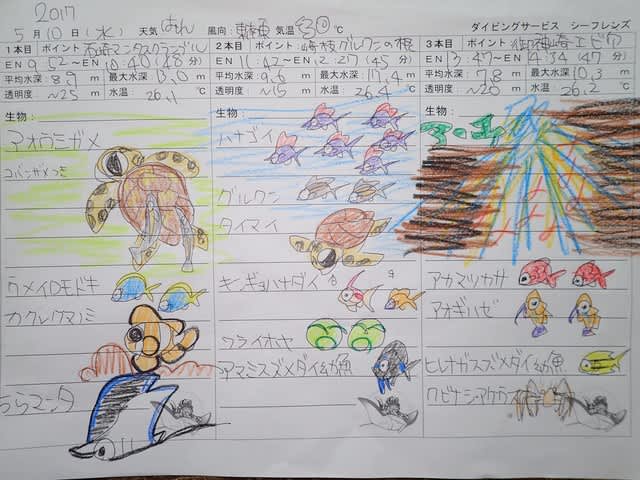 2017
5月10日(水) 天気 はれ 風向: 東 気温 30℃ ダイビングサービス シーフレンズ
1本目 ポイント: 石崎マンタスクランブル
EN 9:52~EX 10:40(48分)
平均水深: 8.9 m 最大水深 13.0 m
透明度 ~25 m 水温 26.1 ℃
生物:
アオウミガメ
コバンザメつき
ウメイロモドキ
カクレクマノミ
ちらマンタ
2本目 ポイント: 崎枝グルクンの根
EN 11:42~EX 12:27(45分)
平均水深: 9.6 m 最大水深 17.4 m
透明度 ~15 m 水温 26.4 ℃
生物:
ハナゴイ
グルクン
タイマイ
キンギョハナダイ ♂ ♀
ワライボヤ
アマミスズメダイ幼魚
3本目 ポイント: 御神崎エビ穴
EN 13:47~EX 14:34(47分)
平均水深: 7.8 m 最大水深 10.3 m
透明度 ~20 m 水温 26.2 ℃
生物:
アカマツカサ
アオギハゼ
ヒレナガスズメダイ幼魚
クビナシアケウス